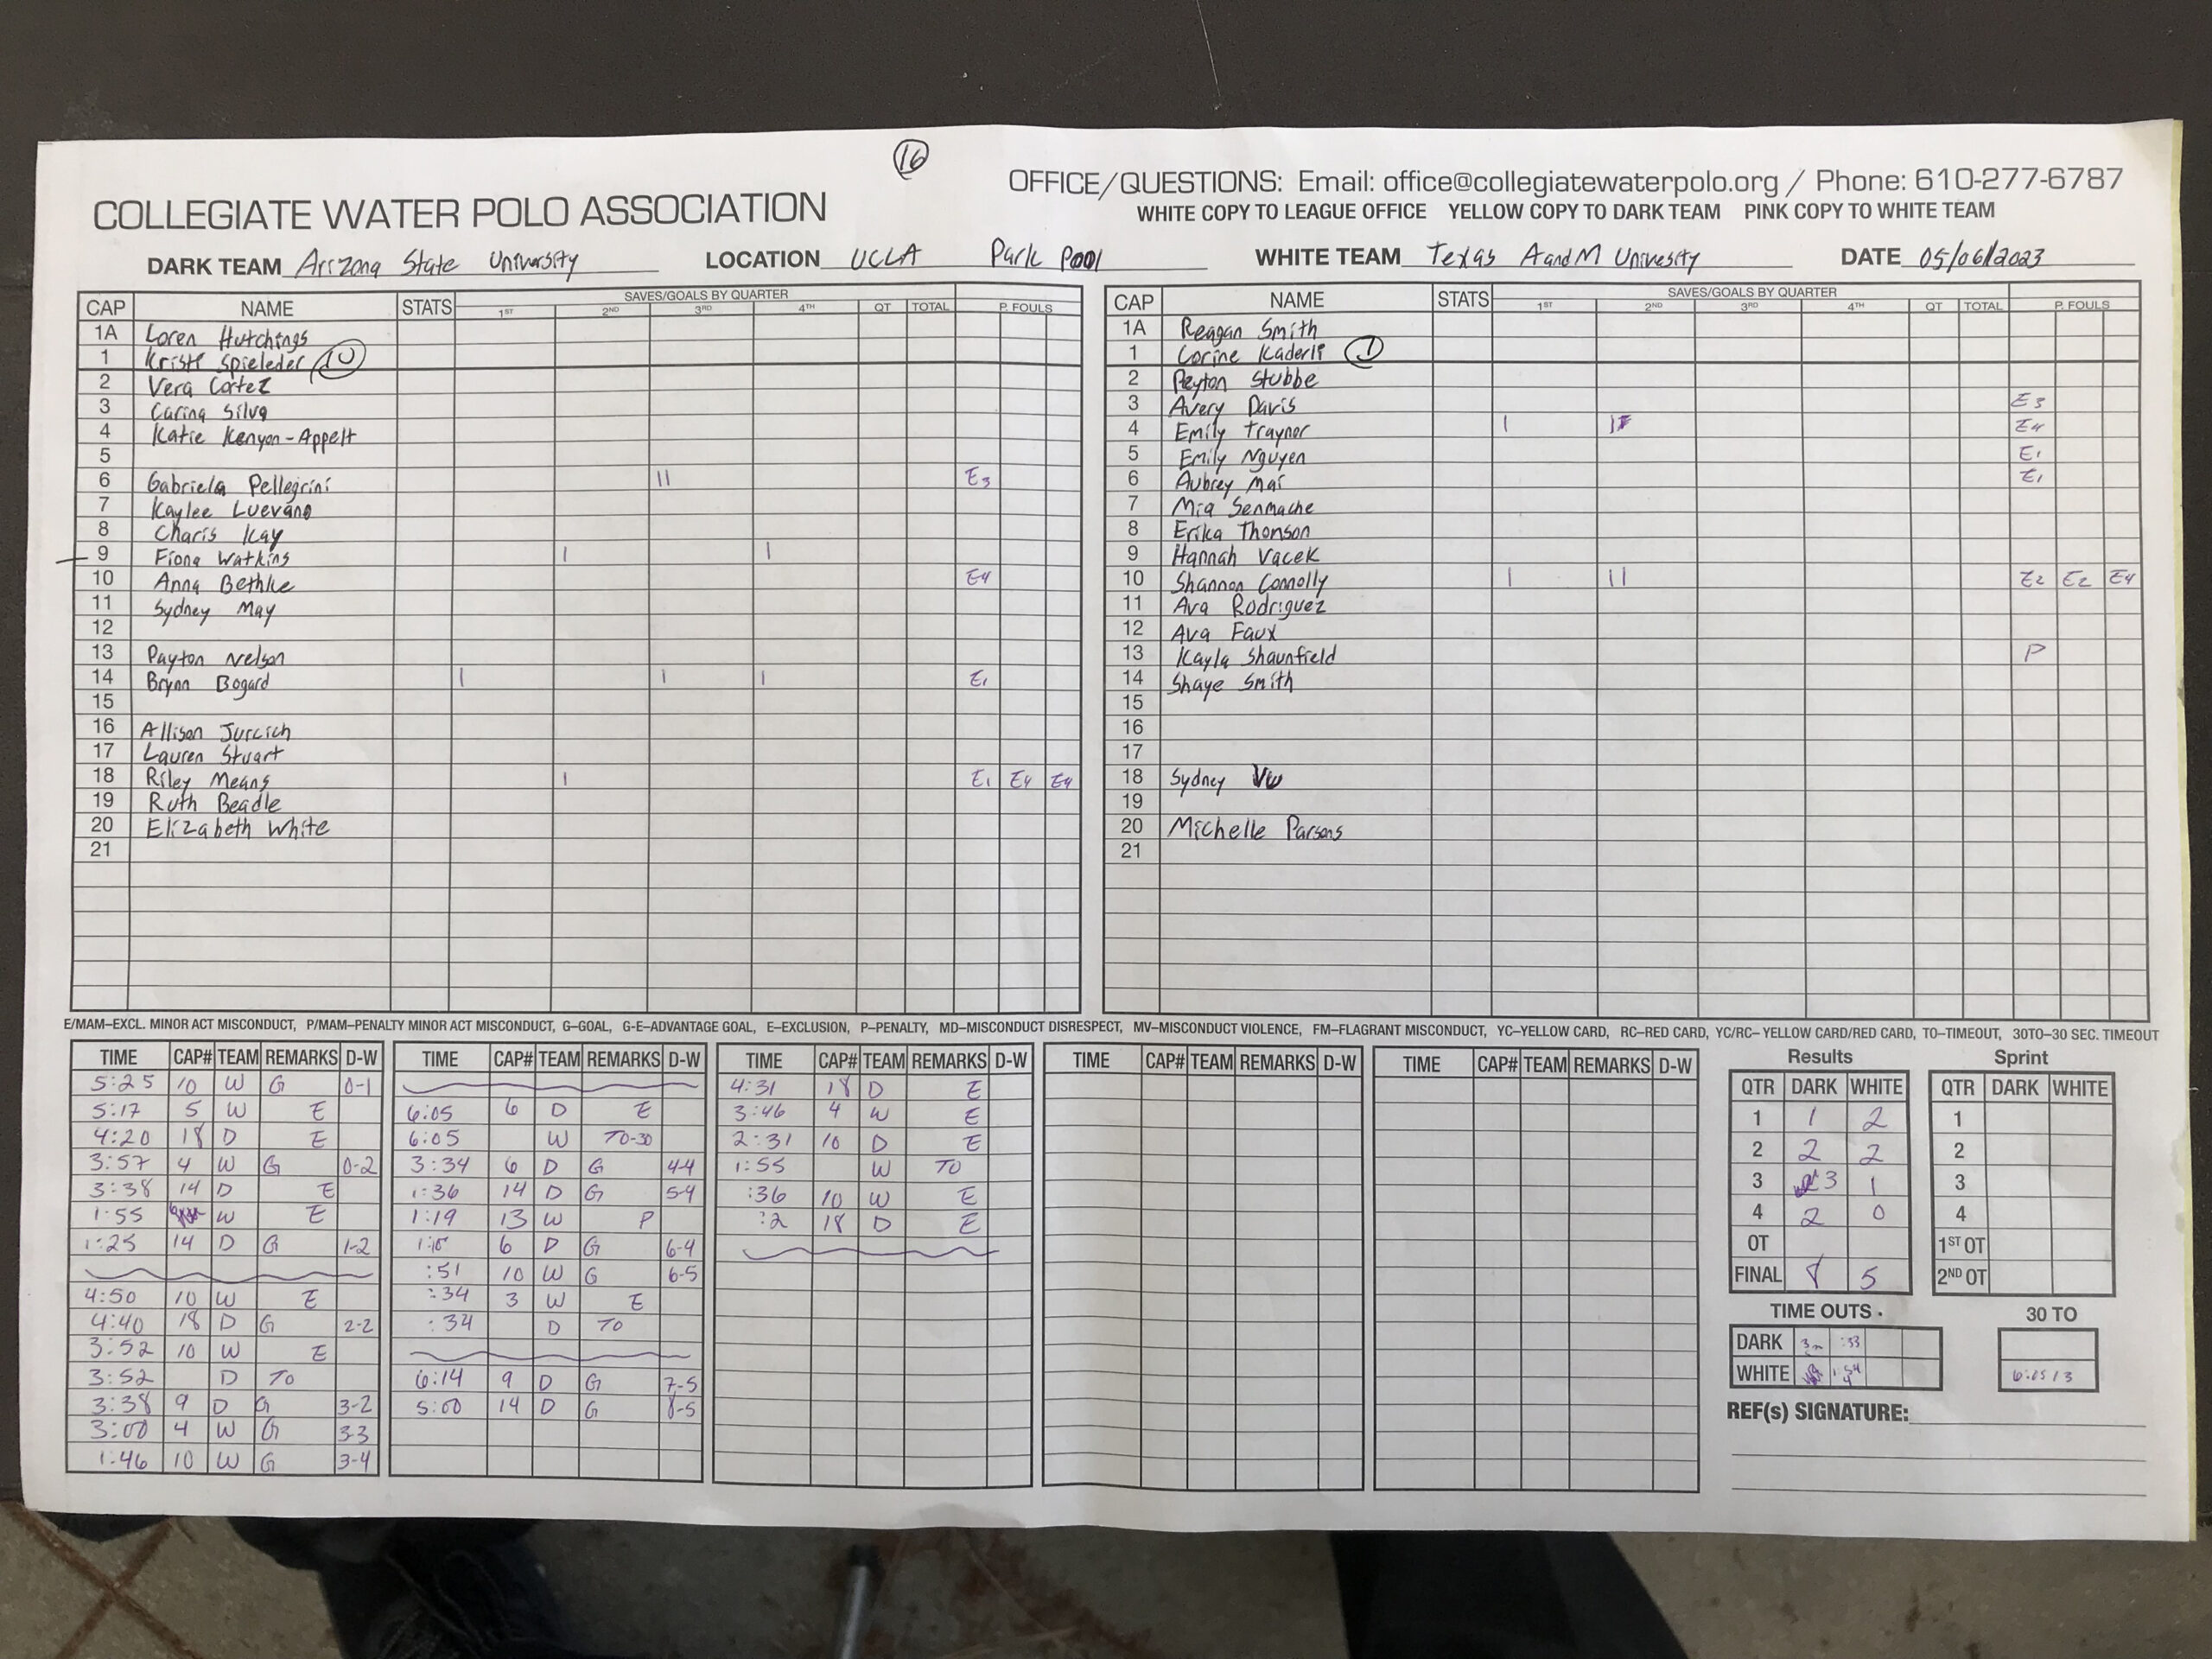 16
COLLEGIATE WATER POLO ASSOCIATION
OFFICE/QUESTIONS: Email: office@collegiatewaterpolo.org / Phone: 610-277-6787
WHITE COPY TO LEAGUE OFFICE YELLOW COPY TO DARK TEAM PINK COPY TO WHITE TEAM
DARK TEAM Arizona State University LOCATION UCLA Park Pool WHITE TEAM Texas A and M Univesity DATE 05/06/2023
CAP NAME STATS SAVES/GOALS BY QUARTER 1ST 2ND 3RD 4TH QT TOTAL P. FOULS
1A Loren Hutchings
1 Kristi Spieleder
2 Vera Cortez
3 Carina Silva
4 Katie Kenyon-Appelt
5
6 Gabriela Pellegrini II E3
7 Kaylee Luevano
8 Charis Kay
9 Fiona Watkins I I
10 Anna Bethke E4
11 Sydney May
12
13 Payton Nelson
14 Brynn Bogard I I I E1
15
16 Allison Jurcich
17 Lauren Stuart
18 Riley Means I E1 E4 E4
19 Ruth Beadle
20 Elizabeth White
21
CAP NAME STATS SAVES/GOALS BY QUARTER 1ST 2ND 3RD 4TH QT TOTAL P. FOULS
1A Reagan Smith
1 Corine Kaderli
2 Peyton Stubbe
3 Avery Davis E3
4 Emily Traynor I I E4
5 Emily Nguyen E1
6 Aubrey Mai E1
7 Mia Senmache
8 Erika Thomson
9 Hannah Vacek
10 Shannon Connolly I II E2 E2 E4
11 Ava Rodriguez
12 Ava Faux
13 Kayla Shaunfield P
14 Shaye Smith
15
16
17
18 Sydney Vu
19
20 Michelle Parsons
21
E/MAM–EXCL. MINOR ACT MISCONDUCT, P/MAM–PENALTY MINOR ACT MISCONDUCT, G–GOAL, G-E–ADVANTAGE GOAL, E–EXCLUSION, P–PENALTY, MD–MISCONDUCT DISRESPECT, MV–MISCONDUCT VIOLENCE, FM–FLAGRANT MISCONDUCT, YC–YELLOW CARD, RC–RED CARD, YC/RC– YELLOW CARD/RED CARD, TO–TIMEOUT, 30TO–30 SEC. TIMEOUT
TIME CAP# TEAM REMARKS D-W
5:25 10 W G 0-1
5:17 5 W E
4:20 18 D E
3:57 4 W G 0-2
3:38 14 D E
1:55 W E
1:25 14 D G 1-2
4:50 10 W E
4:40 18 D G 2-2
3:52 10 W E
3:52 D TO
3:38 9 D G 3-2
3:00 4 W G 3-3
1:46 10 W G 3-4
TIME CAP# TEAM REMARKS D-W
6:05 6 D E
6:05 W TO-30
3:34 6 D G 4-4
1:36 14 D G 5-4
1:19 13 W P
1:15 6 D G 6-4
:51 10 W G 6-5
:34 3 W E
:34 D TO
6:14 9 D G 7-5
5:00 14 D G 8-5
TIME CAP# TEAM REMARKS D-W
4:31 18 D E
3:46 4 W E
2:31 10 D E
1:55 W TO
:36 10 W E
:2 18 D E
TIME CAP# TEAM REMARKS D-W
TIME CAP# TEAM REMARKS D-W
Results
QTR DARK WHITE
1 1 2
2 2 2
3 3 1
4 2 0
OT
FINAL 8 5
Sprint
QTR DARK WHITE
1
2
3
4
1ST OT
2ND OT
TIME OUTS
DARK :33
WHITE 1:54 4
30 TO
6:05 / 3
REF(s) SIGNATURE: